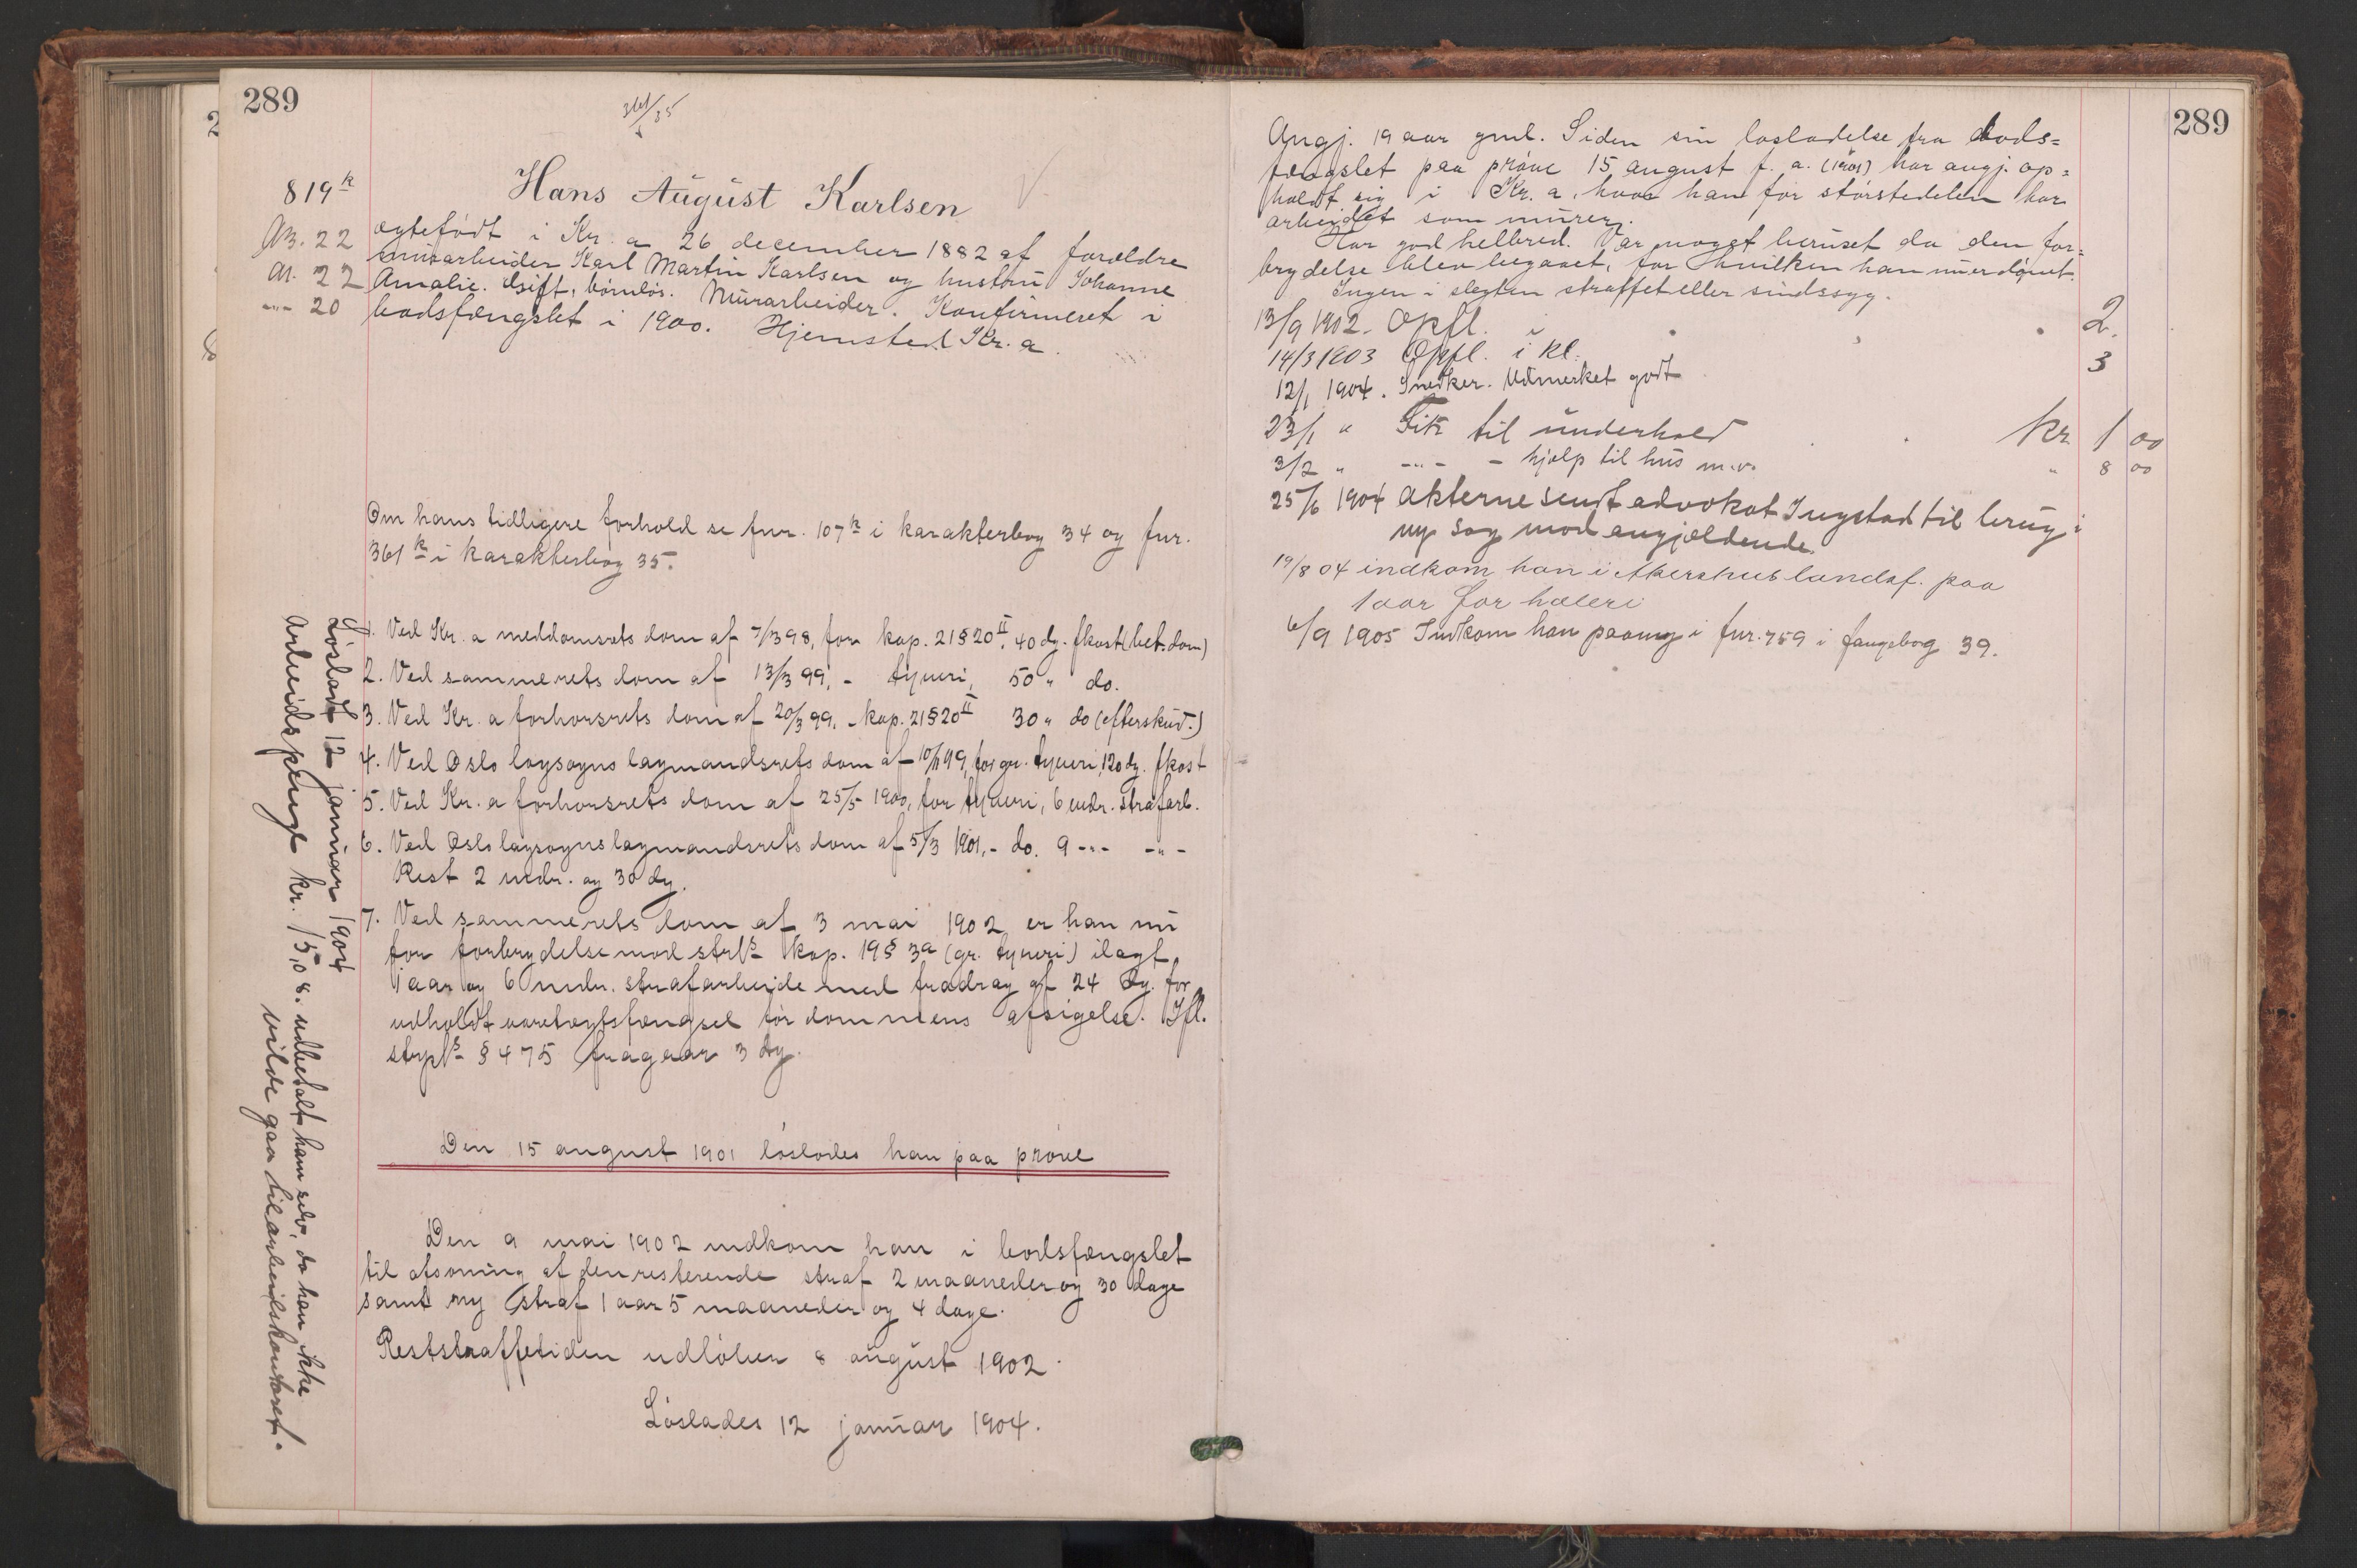 289
361/35
819k
Hans August Karlsen
AB. 22
M. 22
-"- 20
egtefødt i Kr.a 26 december 1882 af forældre
murarbeider Karl Martin Karlsen og hustru Johanne
Amalie. Gift, barnløs. Murarbeider. Konfirmeret i
bodsfængslet i 1900. Hjemsted Kr.a.
Om hans tidligere forhold se fnr. 107k i karakterbog 34 og fnr.
361k i karakterbog 35.
1. Ved Kr.a meddomsrets dom af 7/3 98, for kap. 21 § 20II, 40 dg. fkost (bet. dom)
2. Ved sammerets dom af 13/3 99, - tyveri, 50 " do.
3. Ved Kr.a forhørsrets dom af 20/3 99, - kap. 21 § 20II 30 " do (efterskud.)
4. Ved Oslo lagsogns lagmandsrets dom af 10/11 99, for gr. tyveri, 120 dg. fkost
5. Ved Kr.a forhørsrets dom af 25/5 1900, for tyveri, 6 mdr. strafarb.
6. Ved Oslo lagsogns lagmandsrets dom af 5/3 1901, - do. 9 -"- -"-
Rest 2 mdr. og 30 dg.
7. Ved sammerets dom af 3 mai 1902 er han nu
for forbrydelse mod strls kap. 19 § 3a (gr. tyveri) ilagt
1 aar og 6 mdr. strafarbeide med fradrag af 24 dg. for
udholdt varetægtsfængsel før dommens afsigelse. Ifl.
strpls § 475 fragaar 3 dg.
Den 15 august 1901 løslodes han paa prøve
Den 9 mai 1902 indkom han i bodsfængslet
til afsoning af den resterende straf 2 maaneder og 30 dage
samt ny straf 1 aar 5 maaneder og 4 dage.
Reststraffetiden udløber 8 august 1902.
Løslades 12 januar 1904.
Løsladt 12 januar 1904
Arbeidspenge kr. 15,08. udbetalt ham selv, da han ikke
vilde gaa til arbeidskontoret.
289
Angj. 19 aar gml. Siden sin løsladelse fra bods=
fængslet paa prøve 15 august f. a. (1901) har angj. op=
holdt sig i Kr.a, hvor han for størstedelen har
arbeidet som murer.
Har god helbred. Var noget beruset da den for=
brydelse blev begaaet, for hvilken han nu er dømt.
Ingen i slegten straffet eller sindssyg.
13/9 1902. Opfl. i 2.
14/3 1903 Opfl. i kl. 3
12/1 1904. Snedker. Udmerket godt
23/1 " Fik til underhold kr 1 00
3/2 " -"- - hjælp til hus m.v. " 8 00
25/6 1904 Akterne sendt advokat Ingstad til brug i
ny sag mod angjældende.
19/8 04 indkom han i Akershus landsf. paa
1 aar for hæleri
6/9 1905 Indkom han paany i fnr. 759 i fangebog 39.